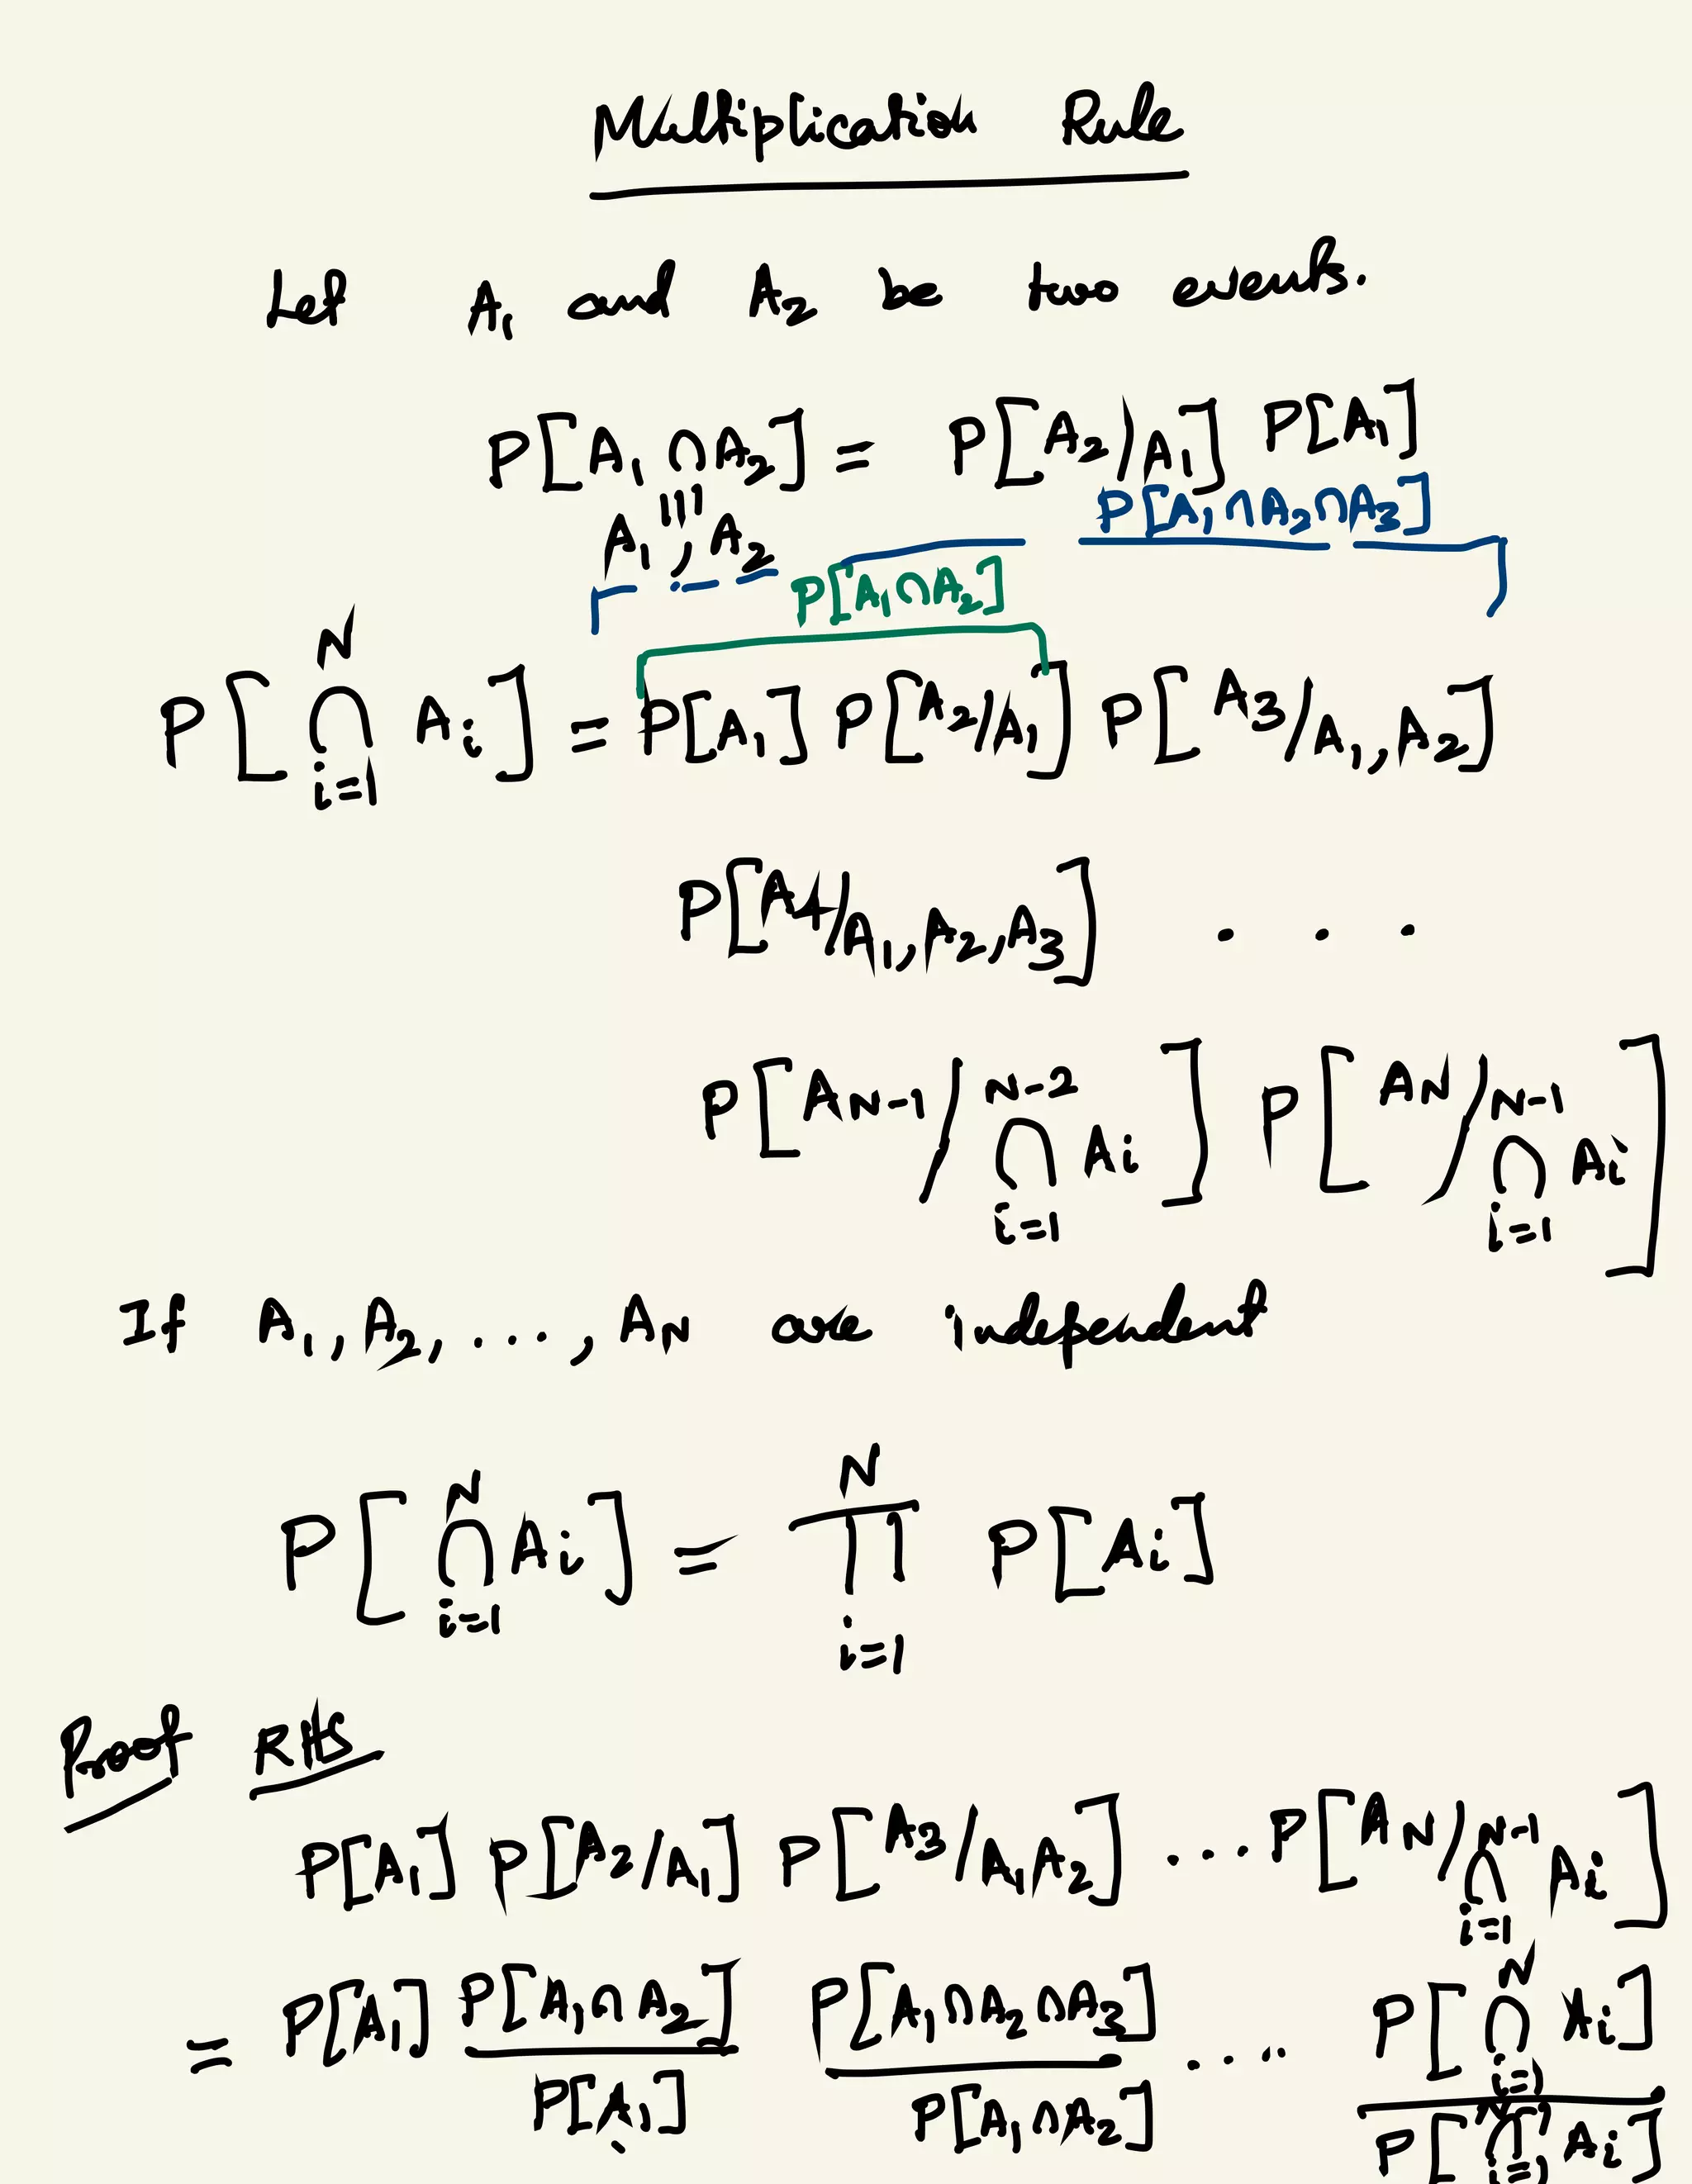 Multiplication Rule
Let A₁ and A₂ be two events.
P[A₁ ∩ A₂] = P[A₂/A₁] P[A₁]
|||
A₁, A₂
P[A₁ ∩ A₂ ∩ A₃]
P[A₁ ∩ A₂]
P[⋂_{i=1}^{N} Aᵢ] = P[A₁] P[A₂/A₁] P[A₃/A₁, A₂]
P[A₄/A₁, A₂, A₃] . . .
P[A_{N-1}/⋂_{i=1}^{N-2} Aᵢ] P[A_N/⋂_{i=1}^{N-1} Aᵢ]
If A₁, A₂, ..., A_N are independent
P[⋂_{i=1}^{N} Aᵢ] = ∏_{i=1}^{N} P[Aᵢ]
Proof RHS
P[A₁] P[A₂/A₁] P[A₃/A₁A₂] ... P[A_N/⋂_{i=1}^{N-1} Aᵢ]
= P[A₁] P[A₁ ∩ A₂]/P[A₁] P[A₁ ∩ A₂ ∩ A₃]/P[A₁ ∩ A₂] .... P[⋂_{i=1}^{N} Aᵢ]/P[⋂_{i=1}^{N-1} Aᵢ]